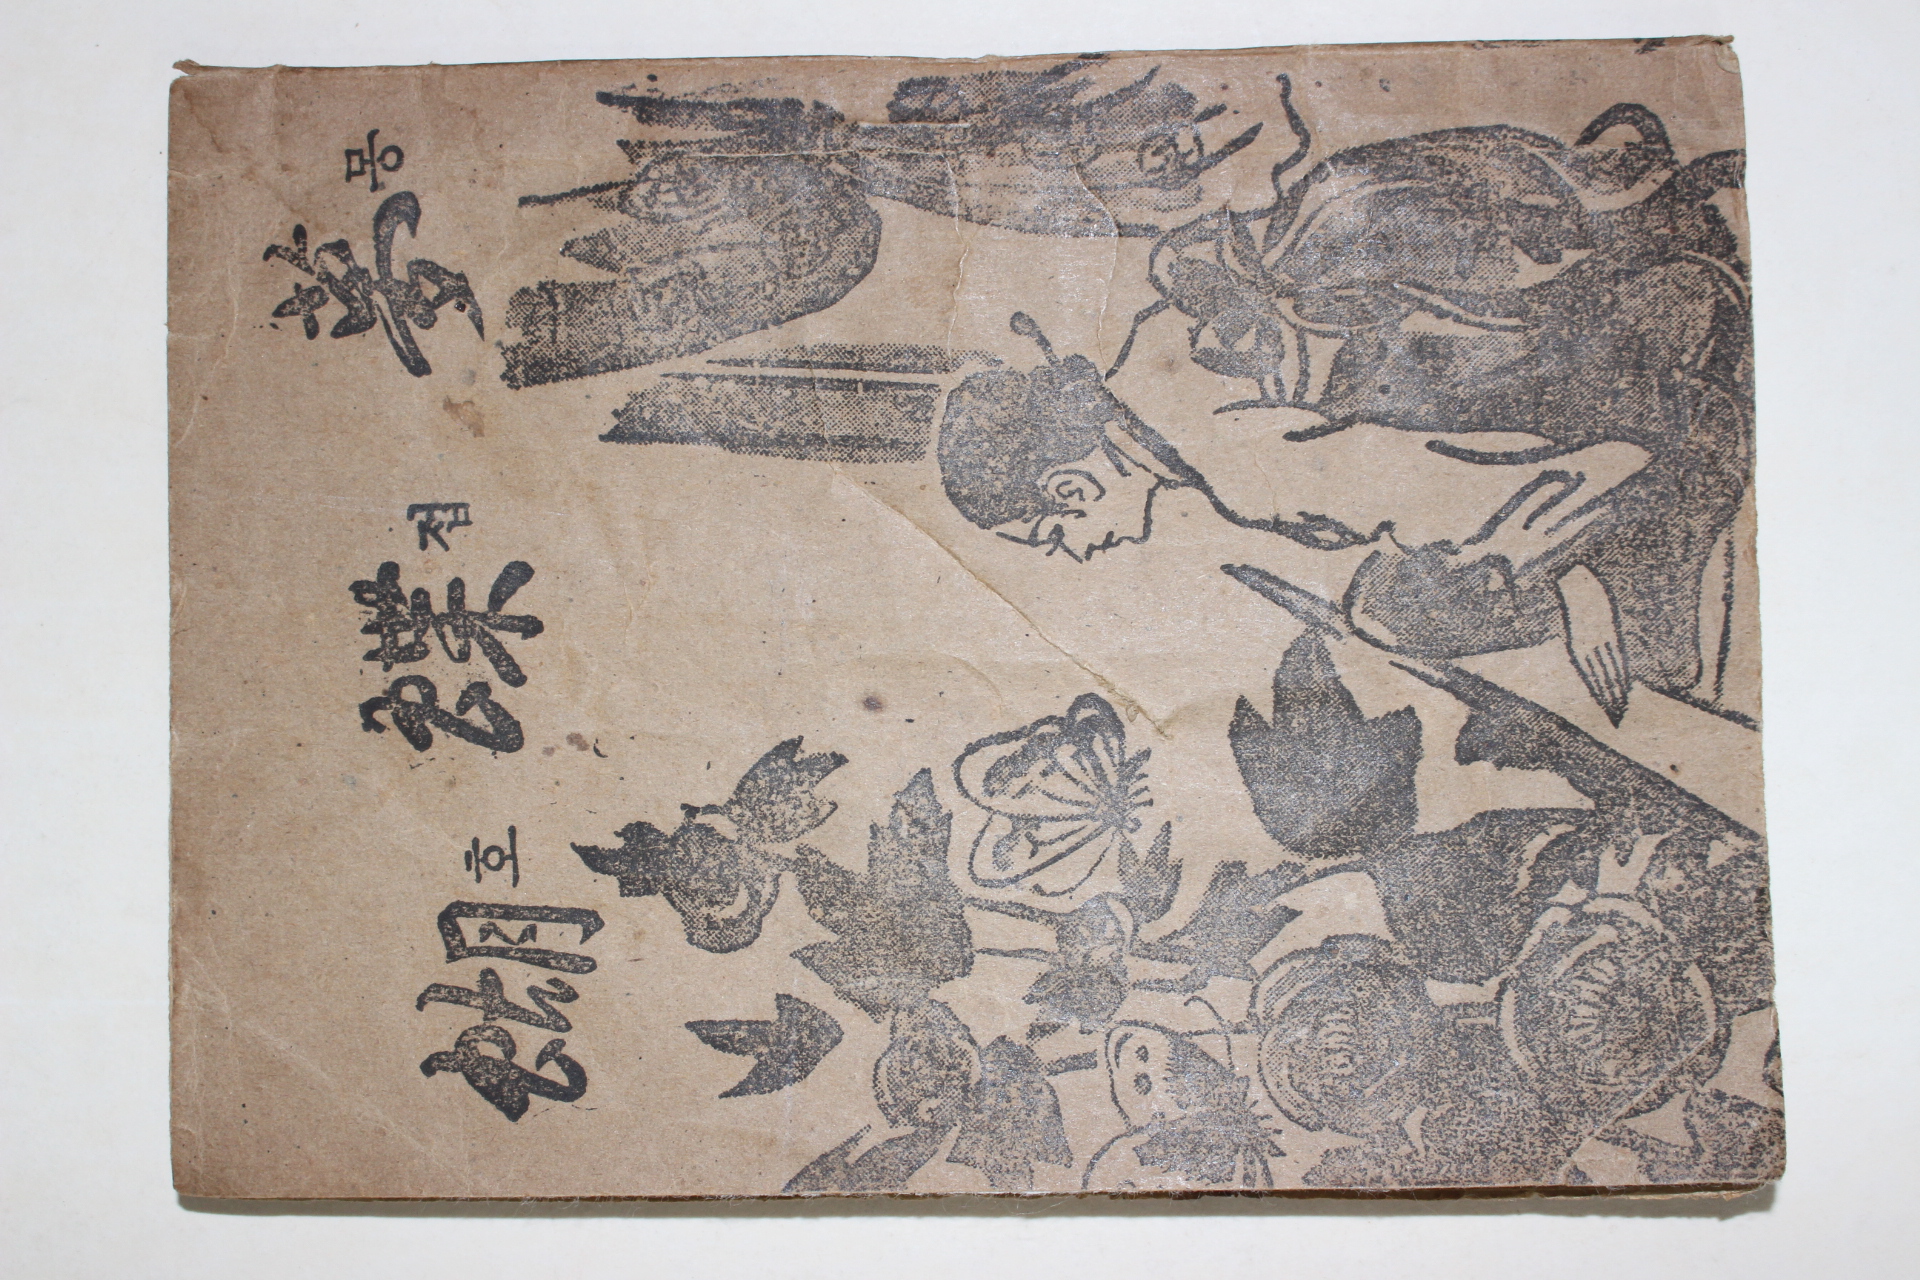 蝴호蝶접夢몽